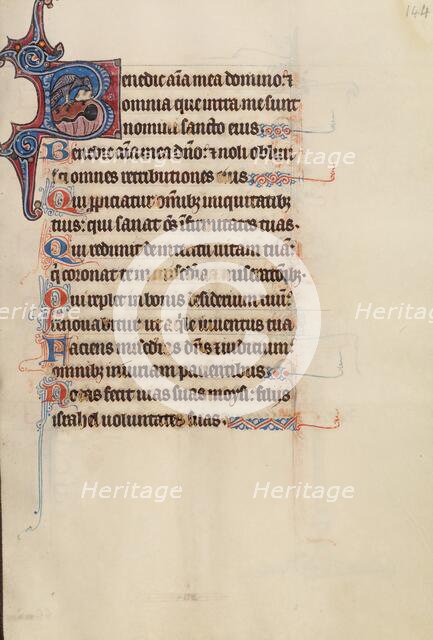 144
Benedic aīa mea domino: ⁊
omnia que intra me sunt
nomini sancto eius
Benedic aīa mea dn̄o: ⁊ noli obliui
sci omnes retributiones eius
Qui propiciatur omībꝫ iniquitatibꝫ
tuis: qui sanat oēs īfirmitates tuas.
Qui redimit de interitu uitam tuā:
q̄ coronat te in mīa ⁊ miseratiōibꝫ
Qui replet in bonis desiderium tuū:
renouabitur ut aq̄le iuuentus tua
Faciens mīas dn̄s: ⁊ iudicium
omnibꝫ iniuriam pacientibus
Notas fecit uias suas moysi: filiis
israhel uoluntates suas.
Heritage
Heritage
Heritage
Heritage
Heritage
Heritage